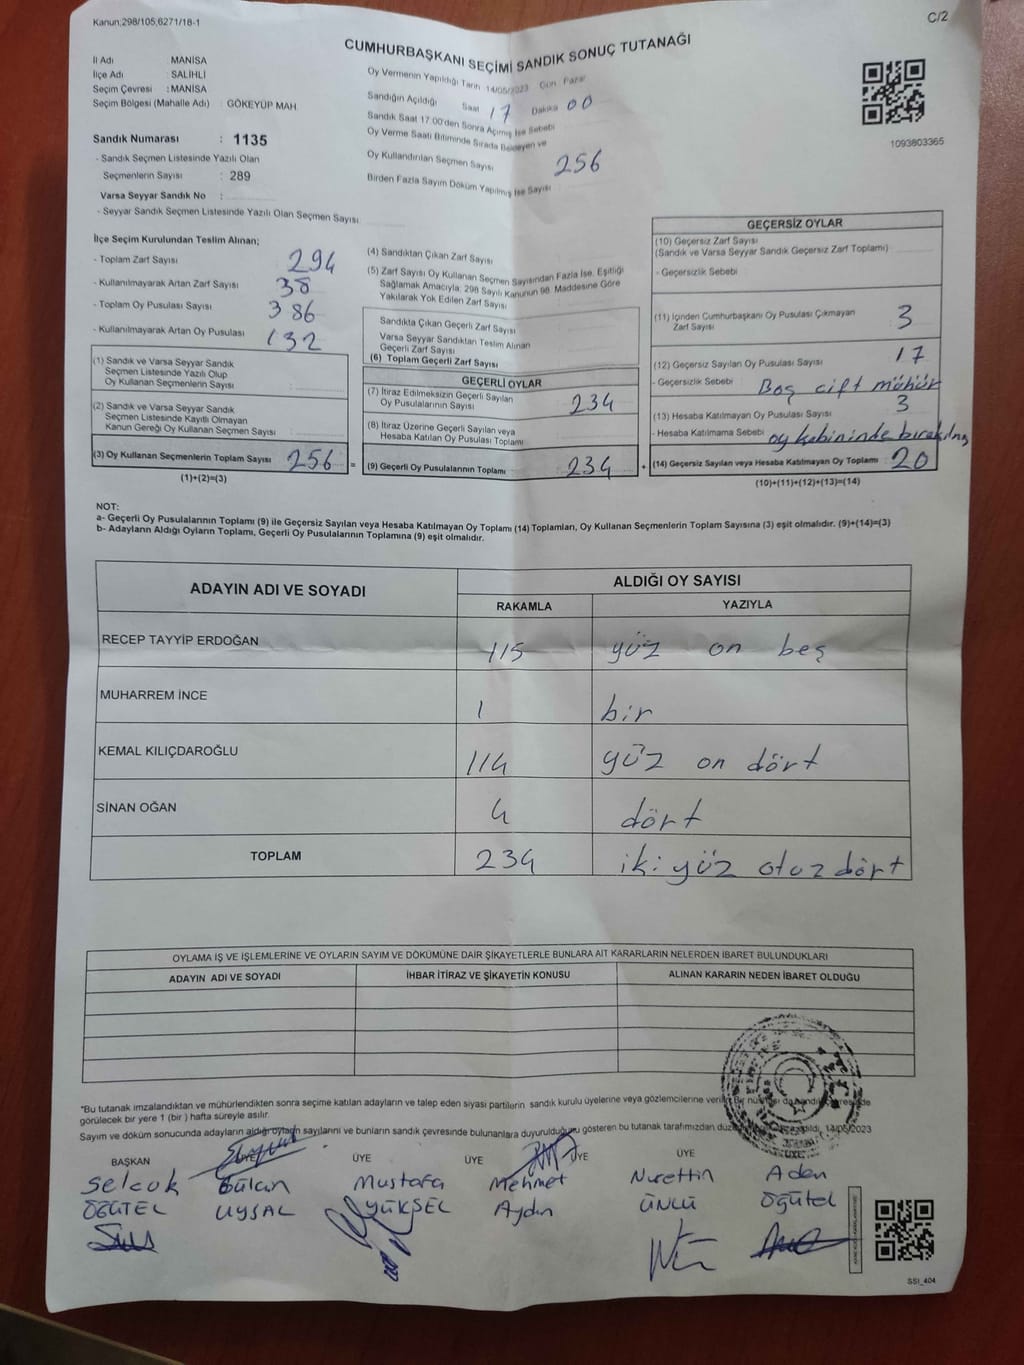 Kanun;298/105,6271/18-1
C/2
CUMHURBAŞKANI SEÇİMİ SANDIK SONUÇ TUTANAĞI
İl Adı MANİSA
İlçe Adı : SALİHLİ
Seçim Çevresi : MANİSA
Seçim Bölgesi (Mahalle Adı) : GÖKEYÜP MAH
Sandık Numarası : 1135
- Sandık Seçmen Listesinde Yazılı Olan
Seçmenlerin Sayısı : 289
Varsa Seyyar Sandık No :
- Seyyar Sandık Seçmen Listesinde Yazılı Olan Seçmen Sayısı
Oy Vermenin Yapıldığı Tarih 14/05/2023 Gün Pazar
Sandığın Açıldığı Saat 17 Dakika 00
Sandık Saat 17:00'den Sonra Açılmış İse Sebebi
Oy Verme Saati Bitiminde Sırada Bekleyen ve
Oy Kullandırılan Seçmen Sayısı 256
Birden Fazla Sayım Döküm Yapılmış İse Sayısı
1093803365
İlçe Seçim Kurulundan Teslim Alınan;
- Toplam Zarf Sayısı 294
- Kullanılmayarak Artan Zarf Sayısı 38
- Toplam Oy Pusulası Sayısı 386
- Kullanılmayarak Artan Oy Pusulası 132
(1) Sandık ve Varsa Seyyar Sandık
Seçmen Listesinde Yazılı Olup
Oy Kullanan Seçmenlerin Sayısı :
(2) Sandık ve Varsa Seyyar Sandık
Seçmen Listesinde Kayıtlı Olmayan
Kanun Gereği Oy Kullanan Seçmen Sayısı :
(3) Oy Kullanan Seçmenlerin Toplam Sayısı 256 =
(1)+(2)=(3)
(4) Sandıktan Çıkan Zarf Sayısı
(5) Zarf Sayısı Oy Kullanan Seçmen Sayısından Fazla İse, Eşitliği
Sağlamak Amacıyla; 298 Sayılı Kanunun 98. Maddesine Göre
Yakılarak Yok Edilen Zarf Sayısı
Sandıkta Çıkan Geçerli Zarf Sayısı
Varsa Seyyar Sandıktan Teslim Alınan
Geçerli Zarf Sayısı
(6) Toplam Geçerli Zarf Sayısı
GEÇERLİ OYLAR
(7) İtiraz Edilmeksizin Geçerli Sayılan
Oy Pusulalarının Sayısı 234
(8) İtiraz Üzerine Geçerli Sayılan veya
Hesaba Katılan Oy Pusulası Toplamı
(9) Geçerli Oy Pusulalarının Toplamı 234 +
GEÇERSİZ OYLAR
(10) Geçersiz Zarf Sayısı
(Sandık ve Varsa Seyyar Sandık Geçersiz Zarf Toplamı)
- Geçersizlik Sebebi
(11) İçinden Cumhurbaşkanı Oy Pusulası Çıkmayan
Zarf Sayısı 3
(12) Geçersiz Sayılan Oy Pusulası Sayısı 17
- Geçersizlik Sebebi Boş çift mühür
(13) Hesaba Katılmayan Oy Pusulası Sayısı 3
- Hesaba Katılmama Sebebi oy kabininde bırakılmış
(14) Geçersiz Sayılan veya Hesaba Katılmayan Oy Toplamı : 20
(10)+(11)+(12)+(13)=(14)
NOT:
a- Geçerli Oy Pusulalarının Toplamı (9) ile Geçersiz Sayılan veya Hesaba Katılmayan Oy Toplamı (14) Toplamları, Oy Kullanan Seçmenlerin Toplam Sayısına (3) eşit olmalıdır. (9)+(14)=(3)
b- Adayların Aldığı Oyların Toplamı, Geçerli Oy Pusulalarının Toplamına (9) eşit olmalıdır.
ADAYIN ADI VE SOYADI ALDIĞI OY SAYISI
RAKAMLA YAZIYLA
RECEP TAYYİP ERDOĞAN 115 yüz on beş
MUHARREM İNCE 1 bir
KEMAL KILIÇDAROĞLU 114 yüz on dört
SİNAN OĞAN 4 dört
TOPLAM 234 iki yüz otuz dört
OYLAMA İŞ VE İŞLEMLERİNE VE OYLARIN SAYIM VE DÖKÜMÜNE DAİR ŞİKAYETLERLE BUNLARA AİT KARARLARIN NELERDEN İBARET BULUNDUKLARI
ADAYIN ADI VE SOYADI İHBAR İTİRAZ VE ŞİKAYETİN KONUSU ALINAN KARARIN NEDEN İBARET OLDUĞU
*Bu tutanak imzalandıktan ve mühürlendikten sonra seçime katılan adayların ve talep eden siyasi partilerin sandık kurulu üyelerine veya gözlemcilerine
görülecek bir yere 1 (bir ) hafta süreyle asılır.
Sayım ve döküm sonucunda adayların aldığı oyların sayılarını ve bunların sandık çevresinde bulunanlara duyurulduğunu gösteren bu tutanak tarafımızdan 14/05/2023
BAŞKAN ÜYE ÜYE ÜYE ÜYE ÜYE
Selcuk Gülcan Mustafa Mehmet Nurettin Aden
ÖĞÜTEL UYSAL YÜKSEL Aydın ÜNLÜ Öğütel
SSI_404